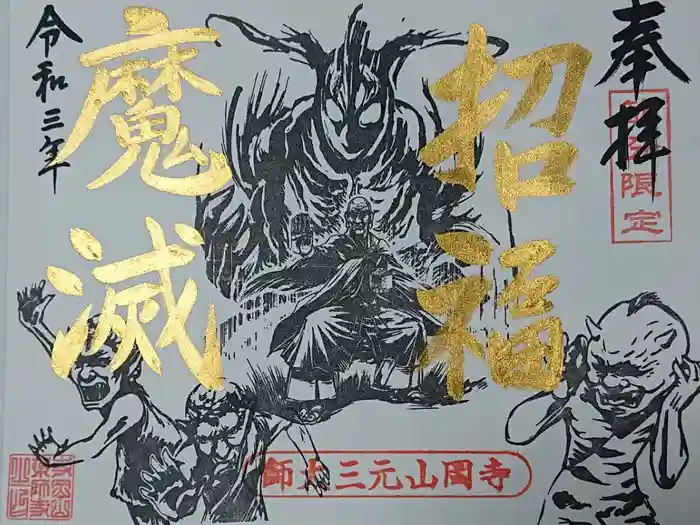 奉拝
限定
招福
魔滅
令和三年
寺岡山元三大師